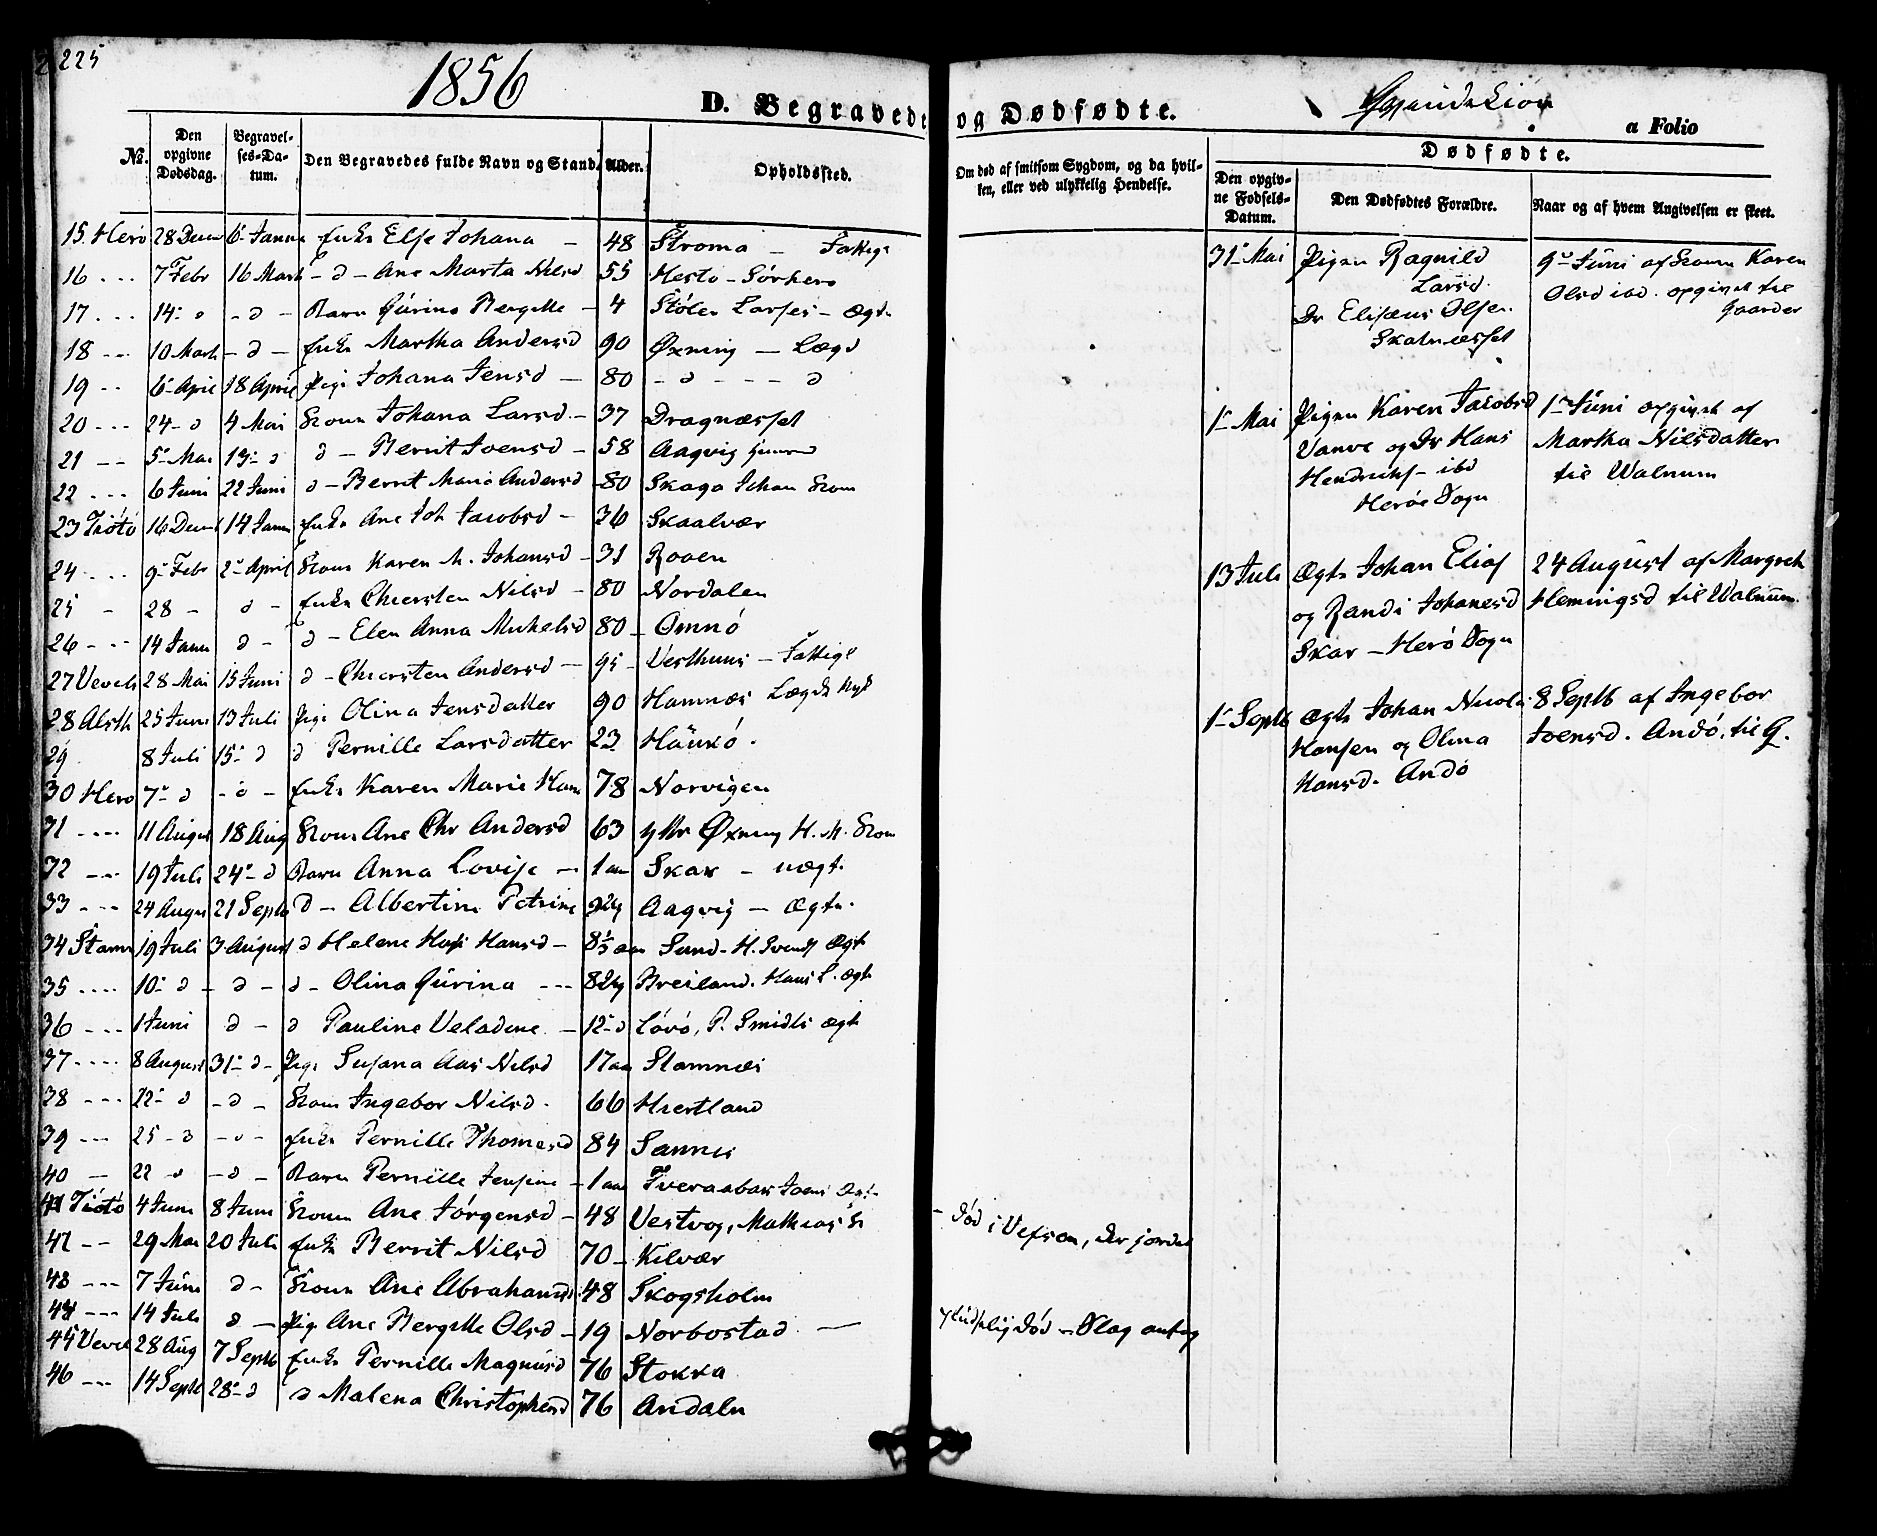 225
1856
D. Begravede og Dødfødte.
Qvindekiøn
a Folio
No.
Den opgivne Dødsdag.
Begravelses-Datum.
Den Begravedes fulde Navn og Stand.
Alder.
Opholdssted.
Om død af smitsom Sygdom, og da hvilken, eller ved ulykkelig Hendelse.
Dødfødte.
Den opgivne Fødsels-Datum.
Den Dødfødtes Forældre.
Naar og af hvem Angivelsen er skeet.
15. Herø 28 Decem 6- Janu Enke Else Johana - 48 Stroma - Fattige
16 --- 7 Febr 16 Marts - d - Ane Marta Nilsd 55 Hestø - Sørhero
17 --- 14- d - d - Barn Gurine Bergitte - 4 Stølen Larses - Ægt.
18 --- 10 Marts - d - Enke Martha Andersd 90 Øxning - Lægd
19 -- 6- April 18 April Pige Johana Jensd - 80 - d - - - d
20 --- 24- d 4 Mai Kone Johana Larsd - 37 Dragnæsset
21 -- 5- Mai 13- d d - Berrit Ivensd - 58 Aagvig
22 --- 6 Juni 22 Juni d - Berrit Maria Andersd - 80 Skaga Johan Kone
23 Tiøtø 16 Decem 14 Janu Enke Ane Joh Jacobsd - 36 Skaalvær
24 --- 9- Febr 2- April Kone Karen M. Johansd - 31 Rooen
25 - 28 - d - Enke Chiersten Nilsd - 80 Nordalen
26 --- 14 Janu d - d - Elen Anna Mickelsd 80 - Omnø
27 Vevels 28 Mai 15 Juni d - Chiersten Andersd - 95 - Vesthuus - Fattige
28 Alsth 25 Juni 13 Juli Pige Olina Jensdatter 90 Hamnæs Lægds
29 8 Juli 15- d d Pernille Larsdatter 23 Hauxø.
30 Herø 7- d - d - Enke Karen Marie Hans 78 Norvigen
31 ---- 11 August 18 Aug Kone Ane Chr Andersd 63 Yttr Øxning H. M. Kone
32 --- 19 Juli 24- d Barn Anna Lovise - 1 aar Skar - uægt.
33 --- 24 August 21 Septb d - Albertine Petrine Aagvig - Ægte.
34 Stamn 19 Juli 3 August d Helene Hansd - 8½ aar Sund - H. Svends Ægt
35 ---- 10- d - d - d - Olina Gurina --- Breiland. Hans L. ægt
36 --- 1 Juni d - d Pauline Veladine - 12- d Løvø, P. Smidts ægt
37 ---- 8 August 31- d - Pige Susana Aas Nilsd 17 aar Stamnæs
38 --- 22- d - d - Kone Ingebor Nilsd. 66 Hiertland
39 --- 25 - d - d - Enke Pernille Thomasd 84 Sannes
40 - 22 - d - d - Barn Pernille Jensine - 1 aar Tveraabak Joens Ægt-
41 Tiøtø 4 Juni 8 Juni Kone Ane Jørgensd - 48 Vestvog, Mathias's K - død i Vefsen, der jordet
42 -- 29 Mai 20 Juli Enke Berrit Nilsd 70 - Kilvær
43 --- 7 Juni d - Kone Ane Abrahamsd 48 Skogsholm
44 --- 14 Juli d - Pige Ane Bergitte Olsd - 19 Norbostad - Pludselig død - Slag antag
45 Vevel 28 Aug 7 Septb Enke Pernille Magnusd 76 Stokka
46 --- 14 Septb 28- d d Malena Christophersd 76 Andaln
31- Mai
Pigen Ragnild Larsd.
Dr Elisæus Olsen
Skalnæsset
9- Juni af Konen Karen
Olsd ibd. opgivet til
Gaarder
1- Mai
Pigen Karen Jacobsd
Vanve og Dr Hans
Hendriks - ibd
Herøe Sogn
1- Juni opgivet af
Martha Nilsdatter
til Walnum
13 Juli
Ægte Johan Elias
og Randi Johanesd
Skar - Herø Sogn
24 August af Margreth
Hemingsd til Walnum.
1- Septb
Ægte Johan Nicolai
Hansen og Olina
Hansd. Andø
8 Septb af Ingebor
Joensd. Andø, til G.